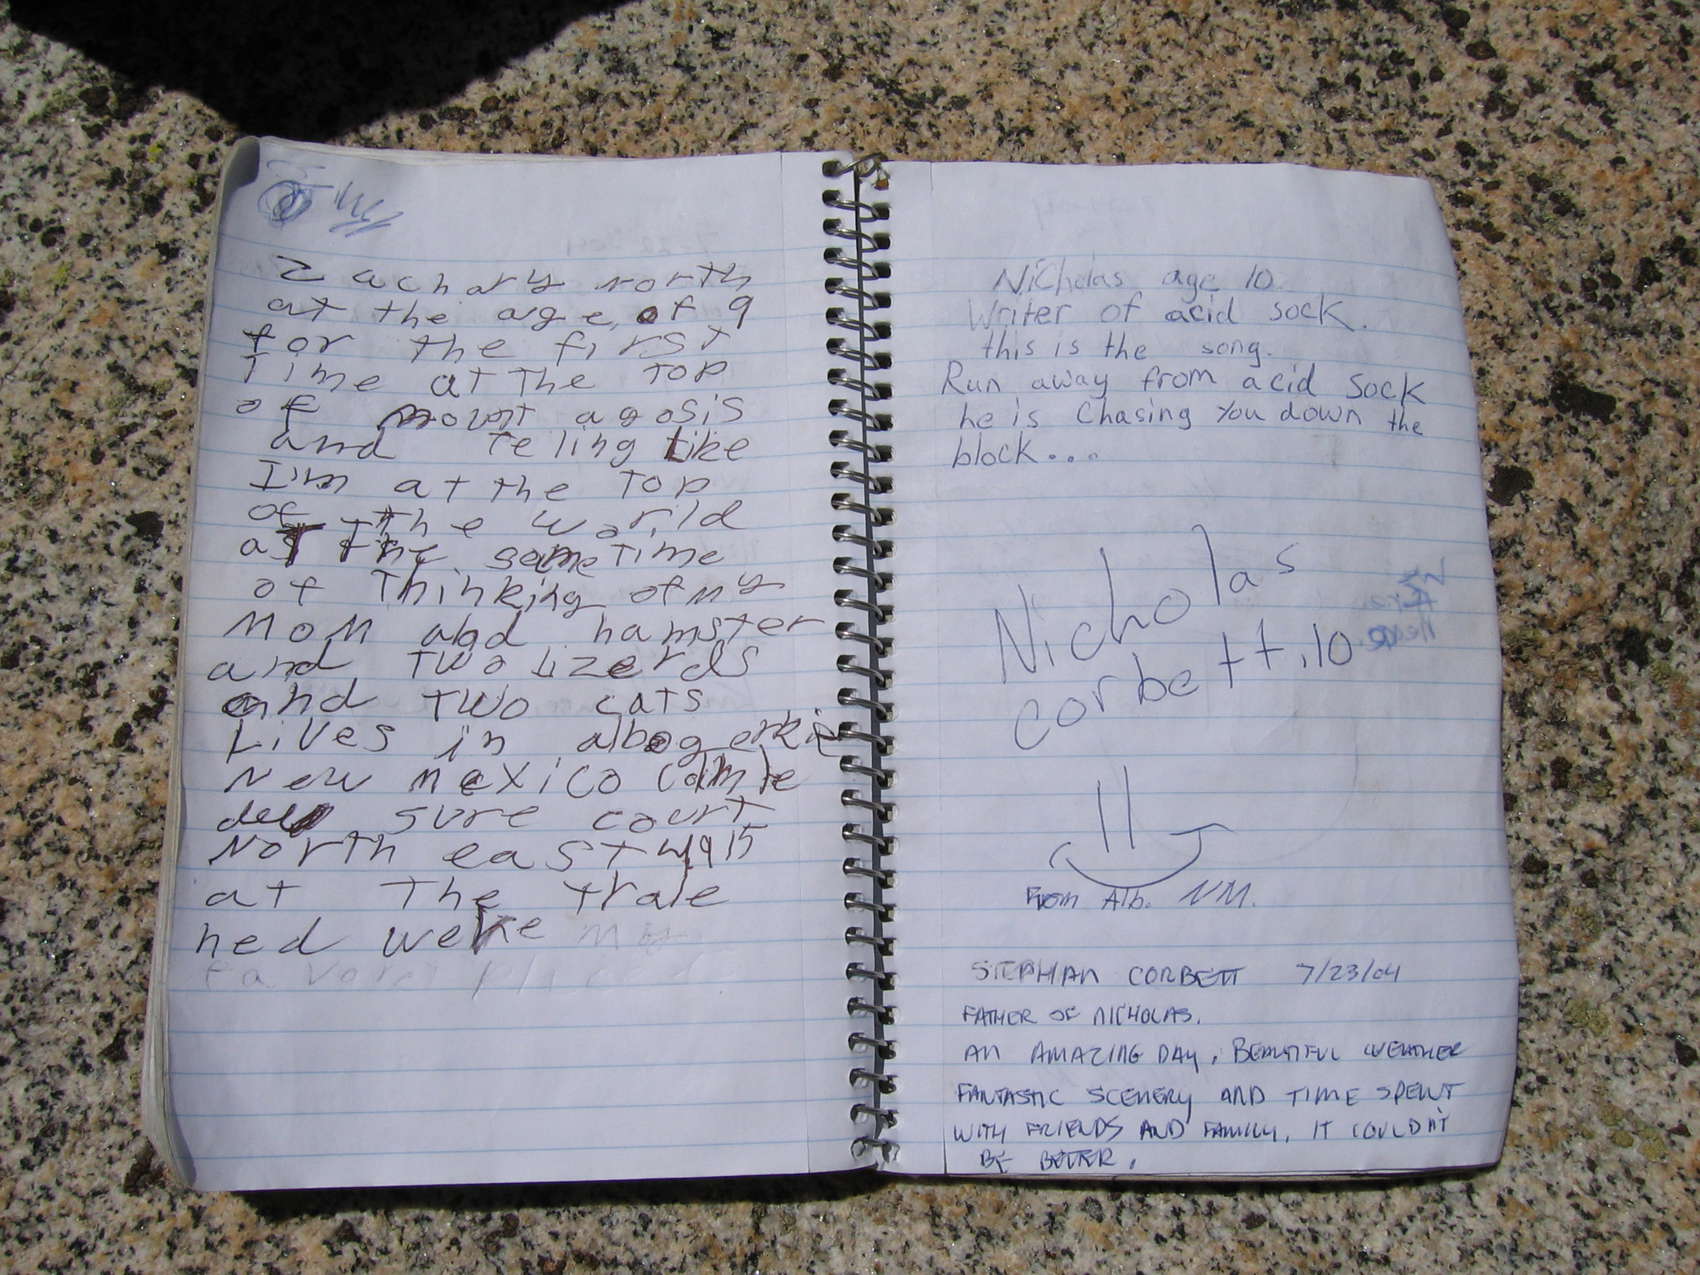 Zachary north
at the age of 9
for the first
Time at the top
of mount agosis
and feling Like
I'm at the Top
of the world
at the same time
of Thinking of my
Mom and hamster
and two lizerds
and two cats
Lives in albogerkie
New mexico
sure court
North east 4915
at The trale
hed
Nicholas age 10.
Writer of acid sock.
this is the song.
Run away from acid sock
he is Chasing You down the
block...
Nicholas
corbett, 10
From Alb. NM.
STEPHAN CORBETT 7/23/04
FATHER OF NICHOLAS.
AN AMAZING DAY, BEAUTIFUL WEATHER
FANTASTIC SCENERY AND TIME SPENT
WITH FRIENDS AND FAMILY, IT COULDN'T
BE BETTER.